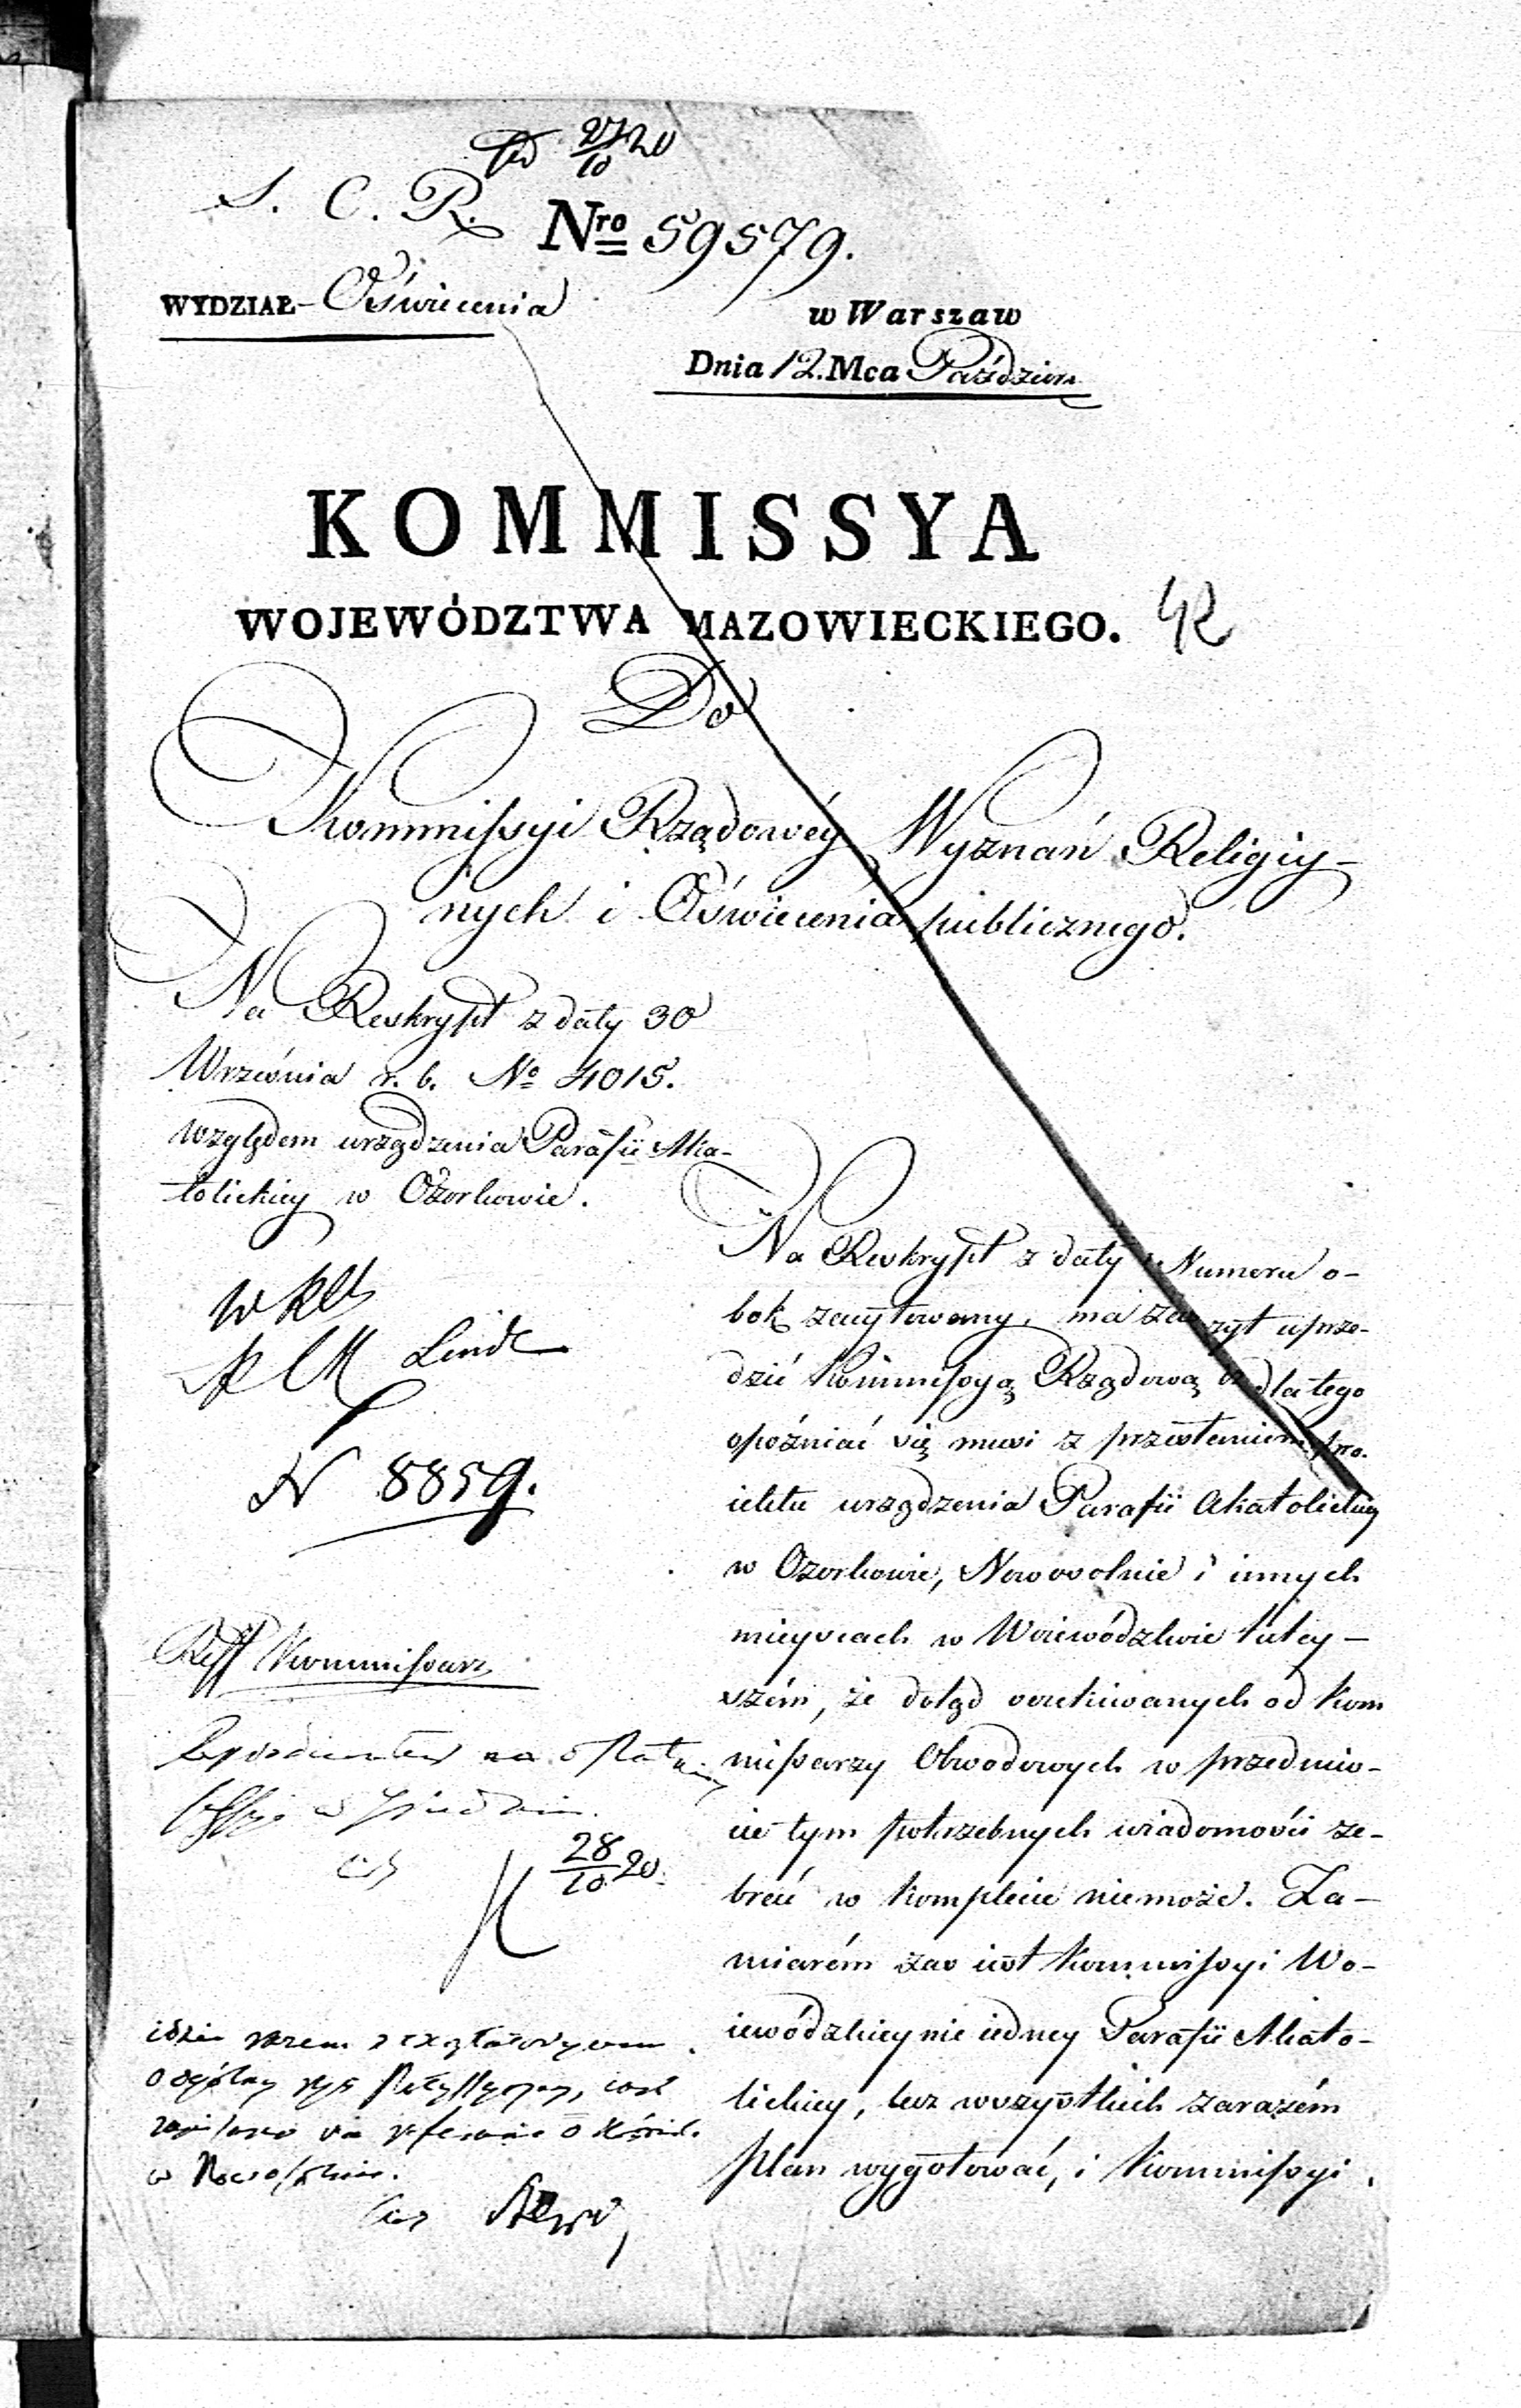 27/10 20
S. C. R.
Nro 59579.
WYDZIAŁ - Oświecenia
w Warszaw
Dnia 12. Mca Paździer.
KOMMISSYA
WOJEWÓDZTWA MAZOWIECKIEGO.
42
Do
Kommissyi Rządowéy Wyznań Religiy-
nych i Oświecenia publicznego.
Na Reskrypt z daty 30
Września r. b. No 4015.
względem urządzenia Parafii Aka-
tolickiey w Ozorkowie.
Linde
N 8859.
Reff Kommissarz
28/10 20.
w Nowosolnie.
Na Reskrypt z daty i Numeru o-
bok zacytowany, ma zaszczyt uprze-
dzić Kommissyą Rządową iż dlatego
opóźniać się musi z przesłaniem pro-
iektu urządzenia Parafii Akatolickiey
w Ozorkowie, Nowosolnie i innych
mieyscach w Woiewództwie tutey-
szém, że dotąd oczekiwanych od Kom
missarzy Obwodowych w przedmio-
cie tym potrzebnych wiadomości ze-
brać w komplecie niemoże. Za-
miarém zas iest Kommissyi Wo-
iewódzkiey nie iedney Parafii Akato-
lickiey, lecz wszystkich zarazém
plan wygotować, i Kommissyi